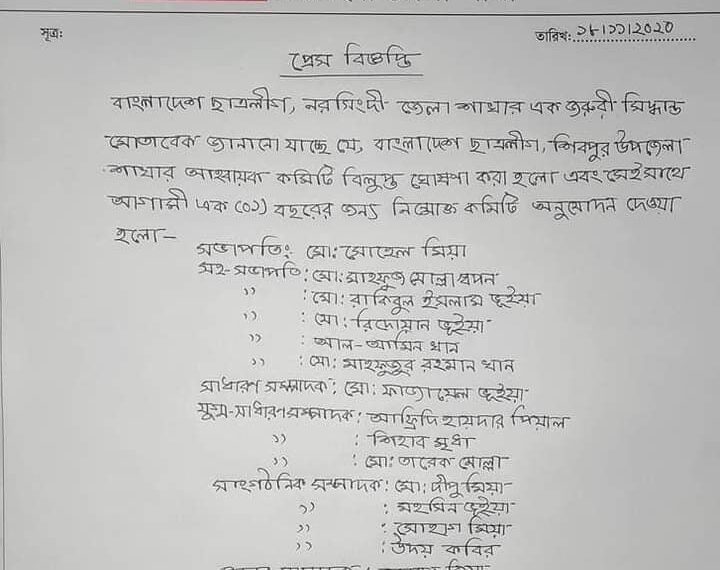 সূত্র:
তারিখ: ১৮।১১।২০২০
প্রেস বিজ্ঞপ্তি
বাংলাদেশ ছাত্রলীগ, নরসিংদী জেলা শাখার এক জরুরী সিদ্ধান্ত
মোতাবেক জানানো যাচ্ছে যে, বাংলাদেশ ছাত্রলীগ, শিবপুর উপজেলা
শাখার আহবায়ক কমিটি বিলুপ্ত ঘোষণা করা হলো এবং সেইসাথে
আগামী এক (০১) বছরের জন্য নিম্মোক্ত কমিটি অনুমোদন দেওয়া
হলো-
সভাপতি: মো: সোহেল মিয়া
সহ-সভাপতি: মো: মাহফুজ মোল্লা স্বপন
" : মো: রাকিবুল ইসলাম ভূইয়া
" : মো: রিদোয়ান ভূইয়া
" : আল-আমিন খান
" : মো: মাহফুজুর রহমান খান
সাধারণ সম্পাদক: মো: ফাজায়েল ভূইয়া
যুগ্ম-সাধারণ সম্পাদক: আফ্রিদি হায়দার পিয়াল
" : শিহাব মৃধা
" : মো: তারেক মোল্লা
সাংগঠনিক সম্পাদক: মো: দীপু মিয়া
" : মহসিন ভূইয়া
" : সোহাগ মিয়া
" : উদয় কবির